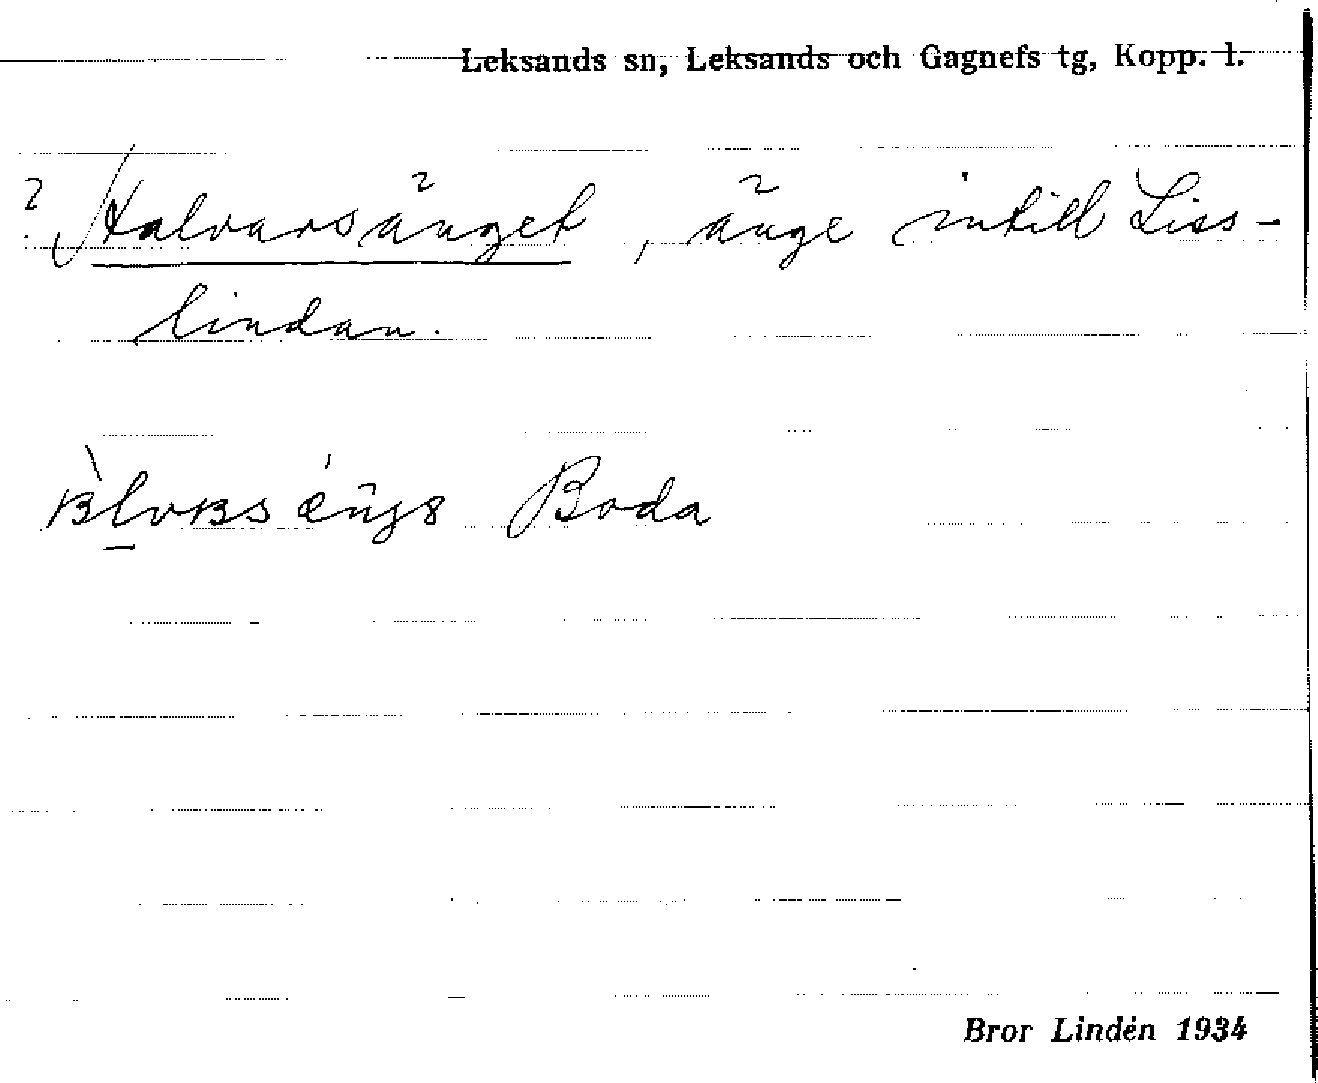 Leksands sn, Leksands och Gagnefs tg, Kopp. l.
? Halvarsänget, änge intill Liss-
lindan.
Boda
Bror Lindén 1934